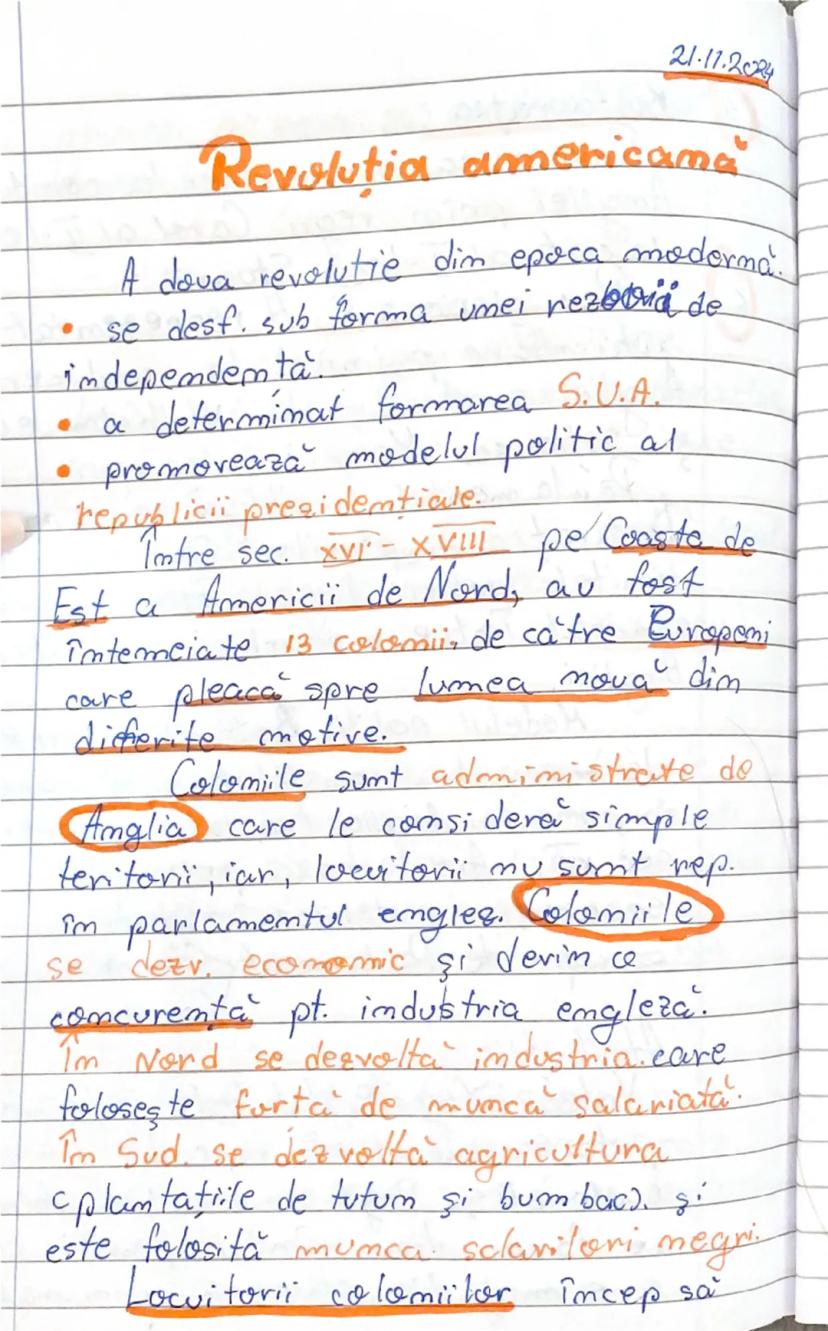 21.11.2024
Revoluția americană
A doua revoluție din epoca modernă.
• se desf. sub forma unei rezboii de
independență.
• a determinat formarea S.U.A.
• promovează modelul politic al
republicii prezidențiale.
Între sec. XVI - XVIII pe Coasta de
Est a Americii de Nord, au fost
întemeiate 13 colonii, de către Europeni
care pleacă spre lumea nouă din
diferite motive.
Coloniile sunt administrate de
Anglia care le consideră simple
teritorii, iar, locuitorii nu sunt rep.
în parlamentul englez. Coloniile
se dezv. economic și devin o
concurență pt. industria engleză.
În Nord se dezvoltă industria care
folosește forță de muncă salariată.
În Sud se dezvoltă agricultura
(plantațiile de tutum și bumbac). și
este folosită munca sclavilori negri.
Locuitorii coloniilor încep să